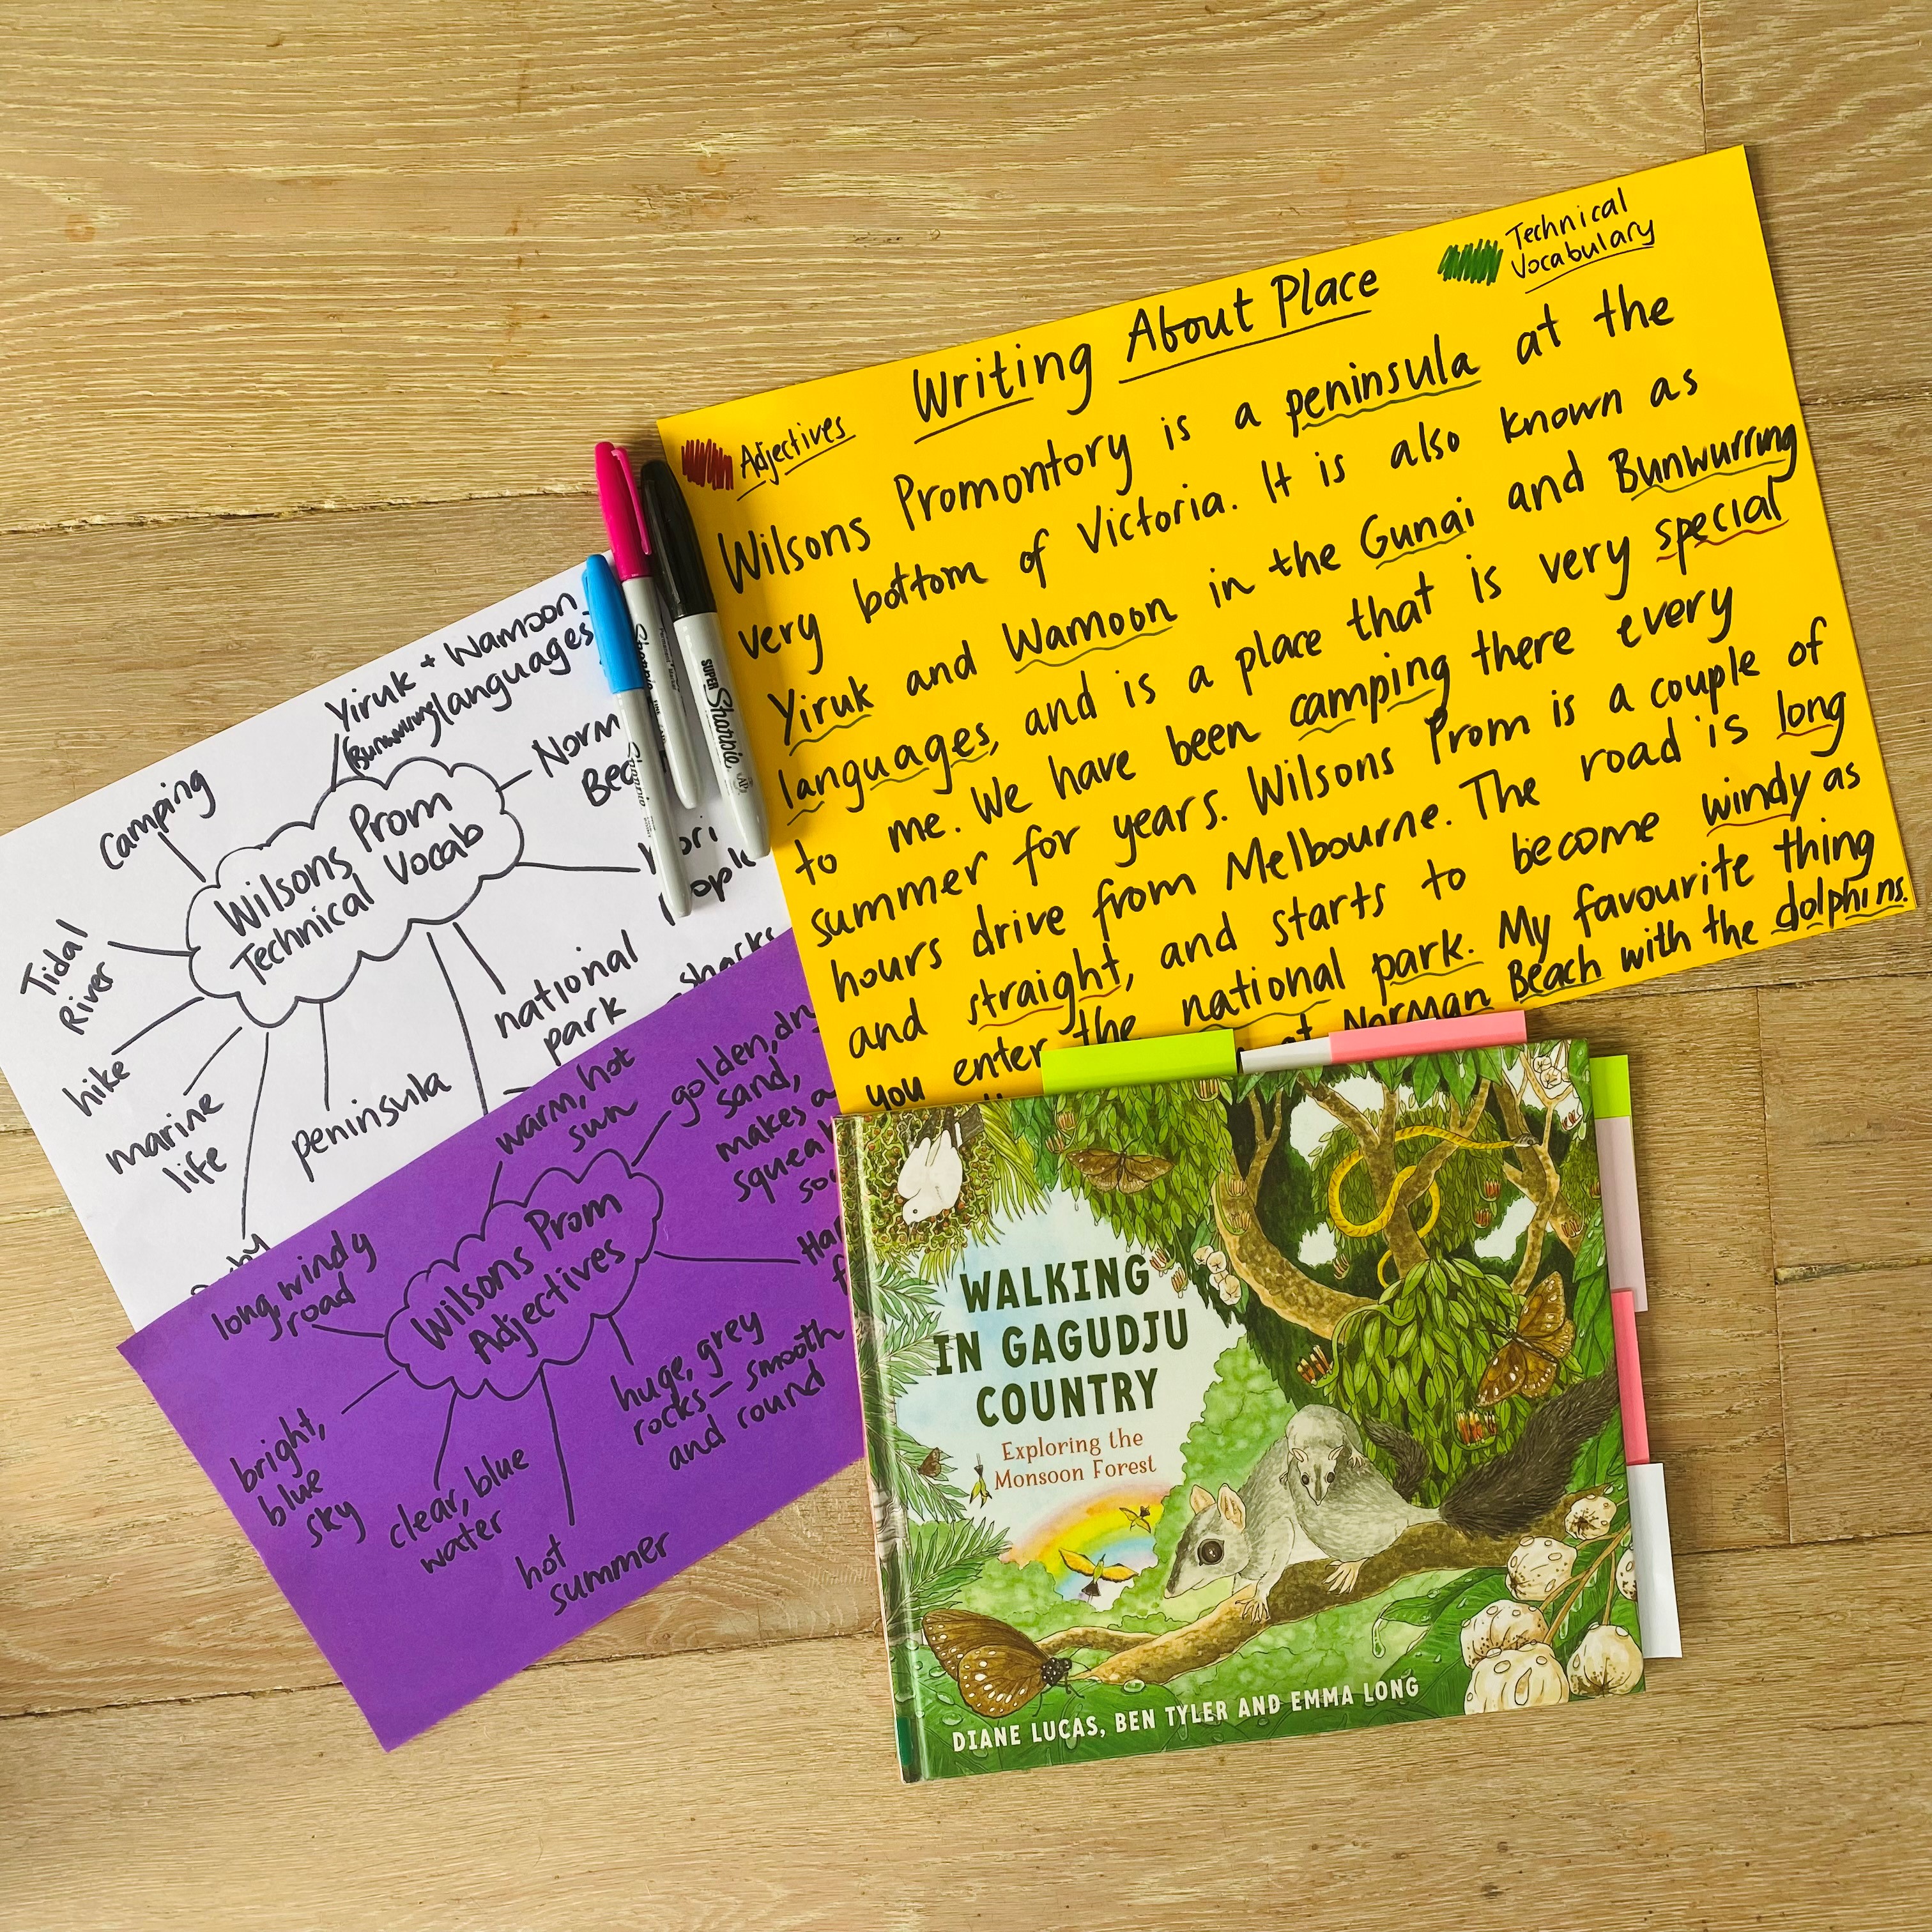 Writing About Place
Adjectives
Technical
Vocabulary
Wilsons Promontory is a peninsula at the
very bottom of Victoria. It is also known as
Yiruk and Wamoon in the Gunai and Bunwurrung
languages, and is a place that is very special
to me. We have been camping there every
summer for years. Wilsons Prom is a couple of
hours drive from Melbourne. The road is long
and straight, and starts to become windy as
you enter the national park. My favourite thing
Norman Beach with the dolphins.
Wilsons Prom
Technical Vocab
Yiruk + Wamoon
languages
Camping
Tidal
River
hike
marine
life
peninsula
national
park
sharks
Wilsons Prom
Adjectives
warm, hot
sun
golden, dry
sand,
makes a
long, windy
road
bright,
blue
sky
clear, blue
water
hot
summer
huge, grey
rocks - smooth
and round
SUPER
Sharpie
Sharpie
Sharpie
WALKING
IN GAGUDJU
COUNTRY
Exploring the
Monsoon Forest
DIANE LUCAS, BEN TYLER AND EMMA LONG